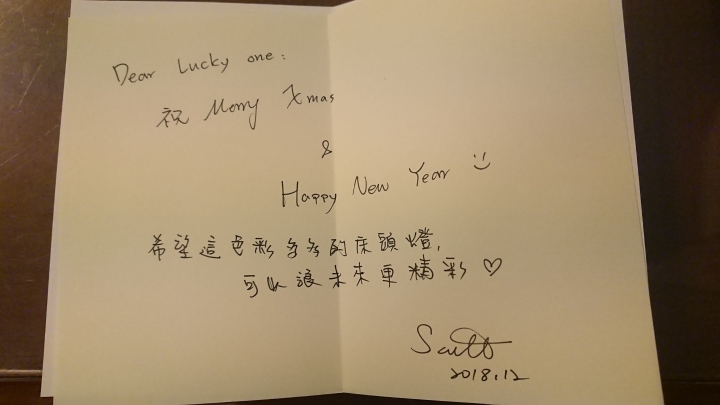 Dear Lucky one:
祝 Merry Xmas
&
Happy New Year :)
希望這色彩多多的床頭燈,
可以讓未來更精彩♡
2018.12